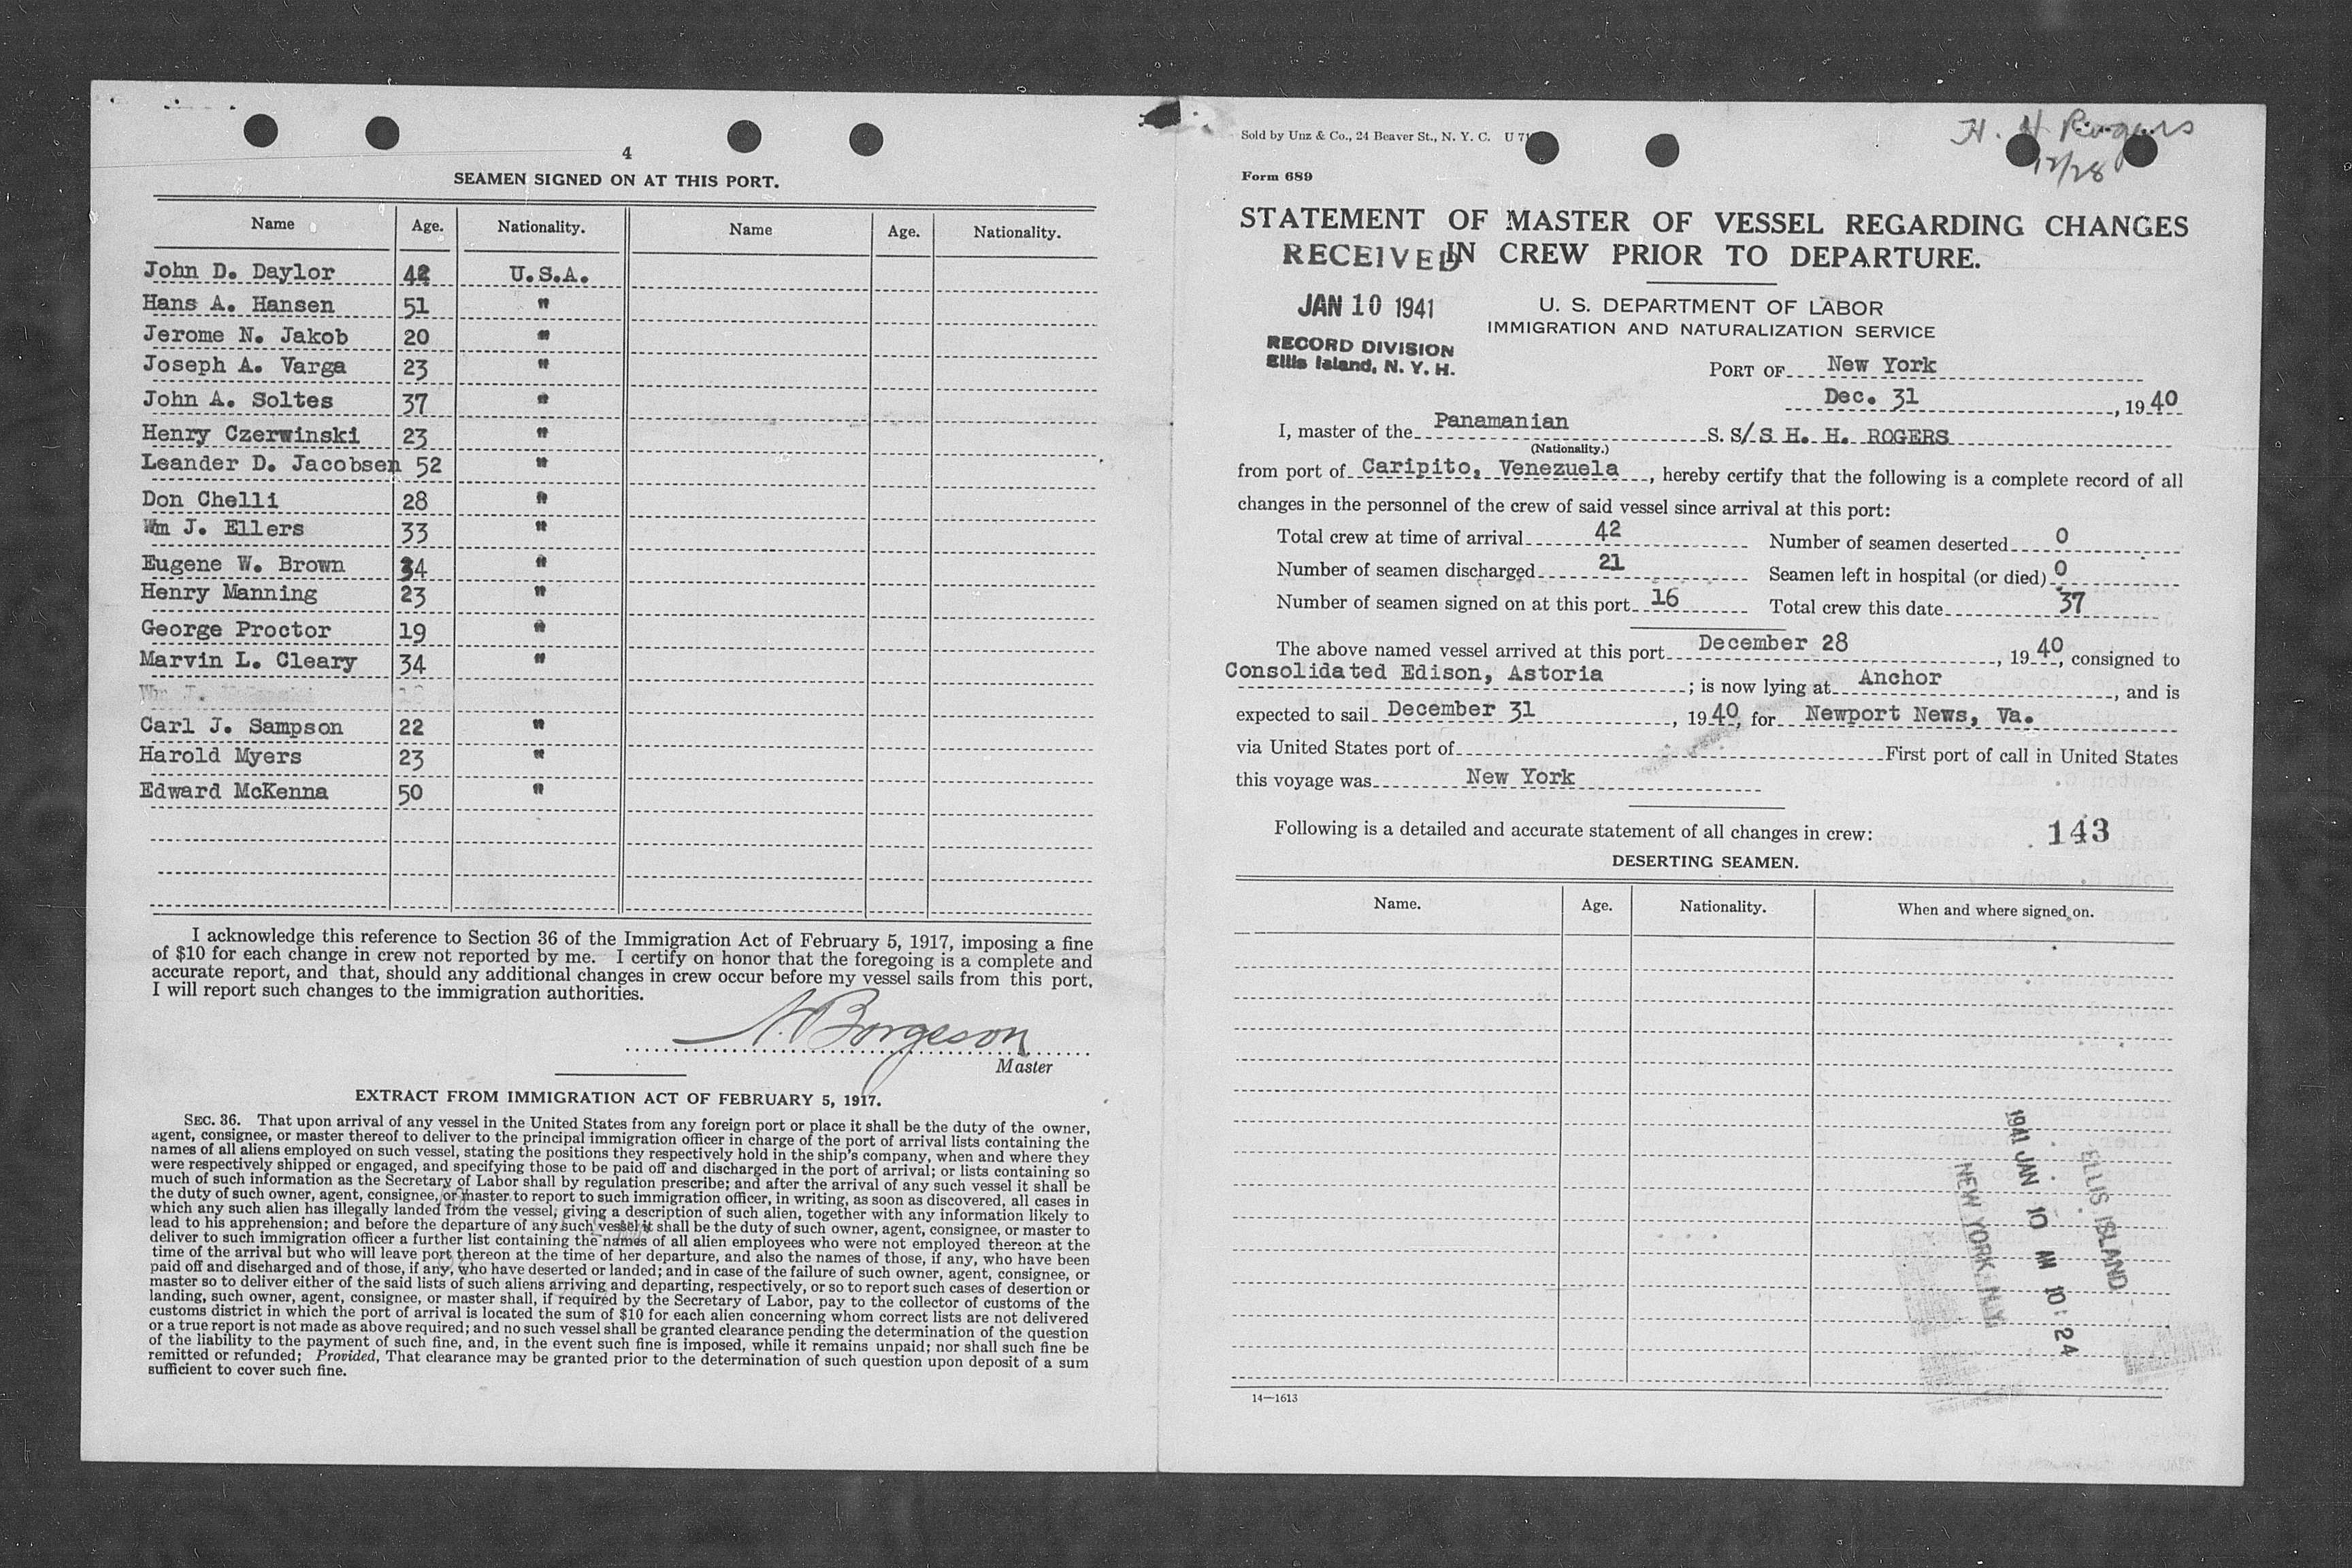 4
SEAMEN SIGNED ON AT THIS PORT.
Name Age. Nationality. Name Age. Nationality.
John D. Daylor 42 U.S.A.
Hans A. Hansen 51 "
Jerome N. Jakob 20 "
Joseph A. Varga 23 "
John A. Soltes 37 "
Henry Czerwinski 23 "
Leander D. Jacobsen 52 "
Don Chelli 28 "
Wm J. Ellers 33 "
Eugene W. Brown 34 "
Henry Manning 23 "
George Proctor 19 "
Marvin L. Cleary 34 "
Carl J. Sampson 22 "
Harold Myers 23 "
Edward McKenna 50 "
I acknowledge this reference to Section 36 of the Immigration Act of February 5, 1917, imposing a fine
of $10 for each change in crew not reported by me. I certify on honor that the foregoing is a complete and
accurate report, and that, should any additional changes in crew occur before my vessel sails from this port,
I will report such changes to the immigration authorities.
A Borgeson
Master
EXTRACT FROM IMMIGRATION ACT OF FEBRUARY 5, 1917.
SEC. 36. That upon arrival of any vessel in the United States from any foreign port or place it shall be the duty of the owner,
agent, consignee, or master thereof to deliver to the principal immigration officer in charge of the port of arrival lists containing the
names of all aliens employed on such vessel, stating the positions they respectively hold in the ship's company, when and where they
were respectively shipped or engaged, and specifying those to be paid off and discharged in the port of arrival; or lists containing so
much of such information as the Secretary of Labor shall by regulation prescribe; and after the arrival of any such vessel it shall be
the duty of such owner, agent, consignee, or master to report to such immigration officer, in writing, as soon as discovered, all cases in
which any such alien has illegally landed from the vessel, giving a description of such alien, together with any information likely to
lead to his apprehension; and before the departure of any such vessel it shall be the duty of such owner, agent, consignee, or master to
deliver to such immigration officer a further list containing the names of all alien employees who were not employed thereon at the
time of the arrival but who will leave port thereon at the time of her departure, and also the names of those, if any, who have been
paid off and discharged and of those, if any, who have deserted or landed; and in case of the failure of such owner, agent, consignee, or
master so to deliver either of the said lists of such aliens arriving and departing, respectively, or so to report such cases of desertion or
landing, such owner, agent, consignee, or master shall, if required by the Secretary of Labor, pay to the collector of customs of the
customs district in which the port of arrival is located the sum of $10 for each alien concerning whom correct lists are not delivered
or a true report is not made as above required; and no such vessel shall be granted clearance pending the determination of the question
of the liability to the payment of such fine, and, in the event such fine is imposed, while it remains unpaid; nor shall such fine be
remitted or refunded; Provided, That clearance may be granted prior to the determination of such question upon deposit of a sum
sufficient to cover such fine.
Sold by Unz & Co., 24 Beaver St., N. Y. C.
H. H Rogers
12/28
Form 689
STATEMENT OF MASTER OF VESSEL REGARDING CHANGES
IN CREW PRIOR TO DEPARTURE.
RECEIVED
JAN 10 1941
RECORD DIVISION
Ellis Island, N. Y. H.
U. S. DEPARTMENT OF LABOR
IMMIGRATION AND NATURALIZATION SERVICE
PORT OF New York
Dec. 31, 1940
I, master of the Panamanian S. S/S H. H. ROGERS
(Nationality.)
from port of Caripito, Venezuela, hereby certify that the following is a complete record of all
changes in the personnel of the crew of said vessel since arrival at this port:
Total crew at time of arrival 42 Number of seamen deserted 0
Number of seamen discharged 21 Seamen left in hospital (or died) 0
Number of seamen signed on at this port 16 Total crew this date 37
The above named vessel arrived at this port December 28, 1940, consigned to
Consolidated Edison, Astoria; is now lying at Anchor, and is
expected to sail December 31, 1940, for Newport News, Va.
via United States port of First port of call in United States
this voyage was New York
Following is a detailed and accurate statement of all changes in crew: 143
DESERTING SEAMEN.
Name. Age. Nationality. When and where signed on.
ELLIS ISLAND
1941 JAN 10 AM 10:24
NEW YORK. N.Y.
14—1613